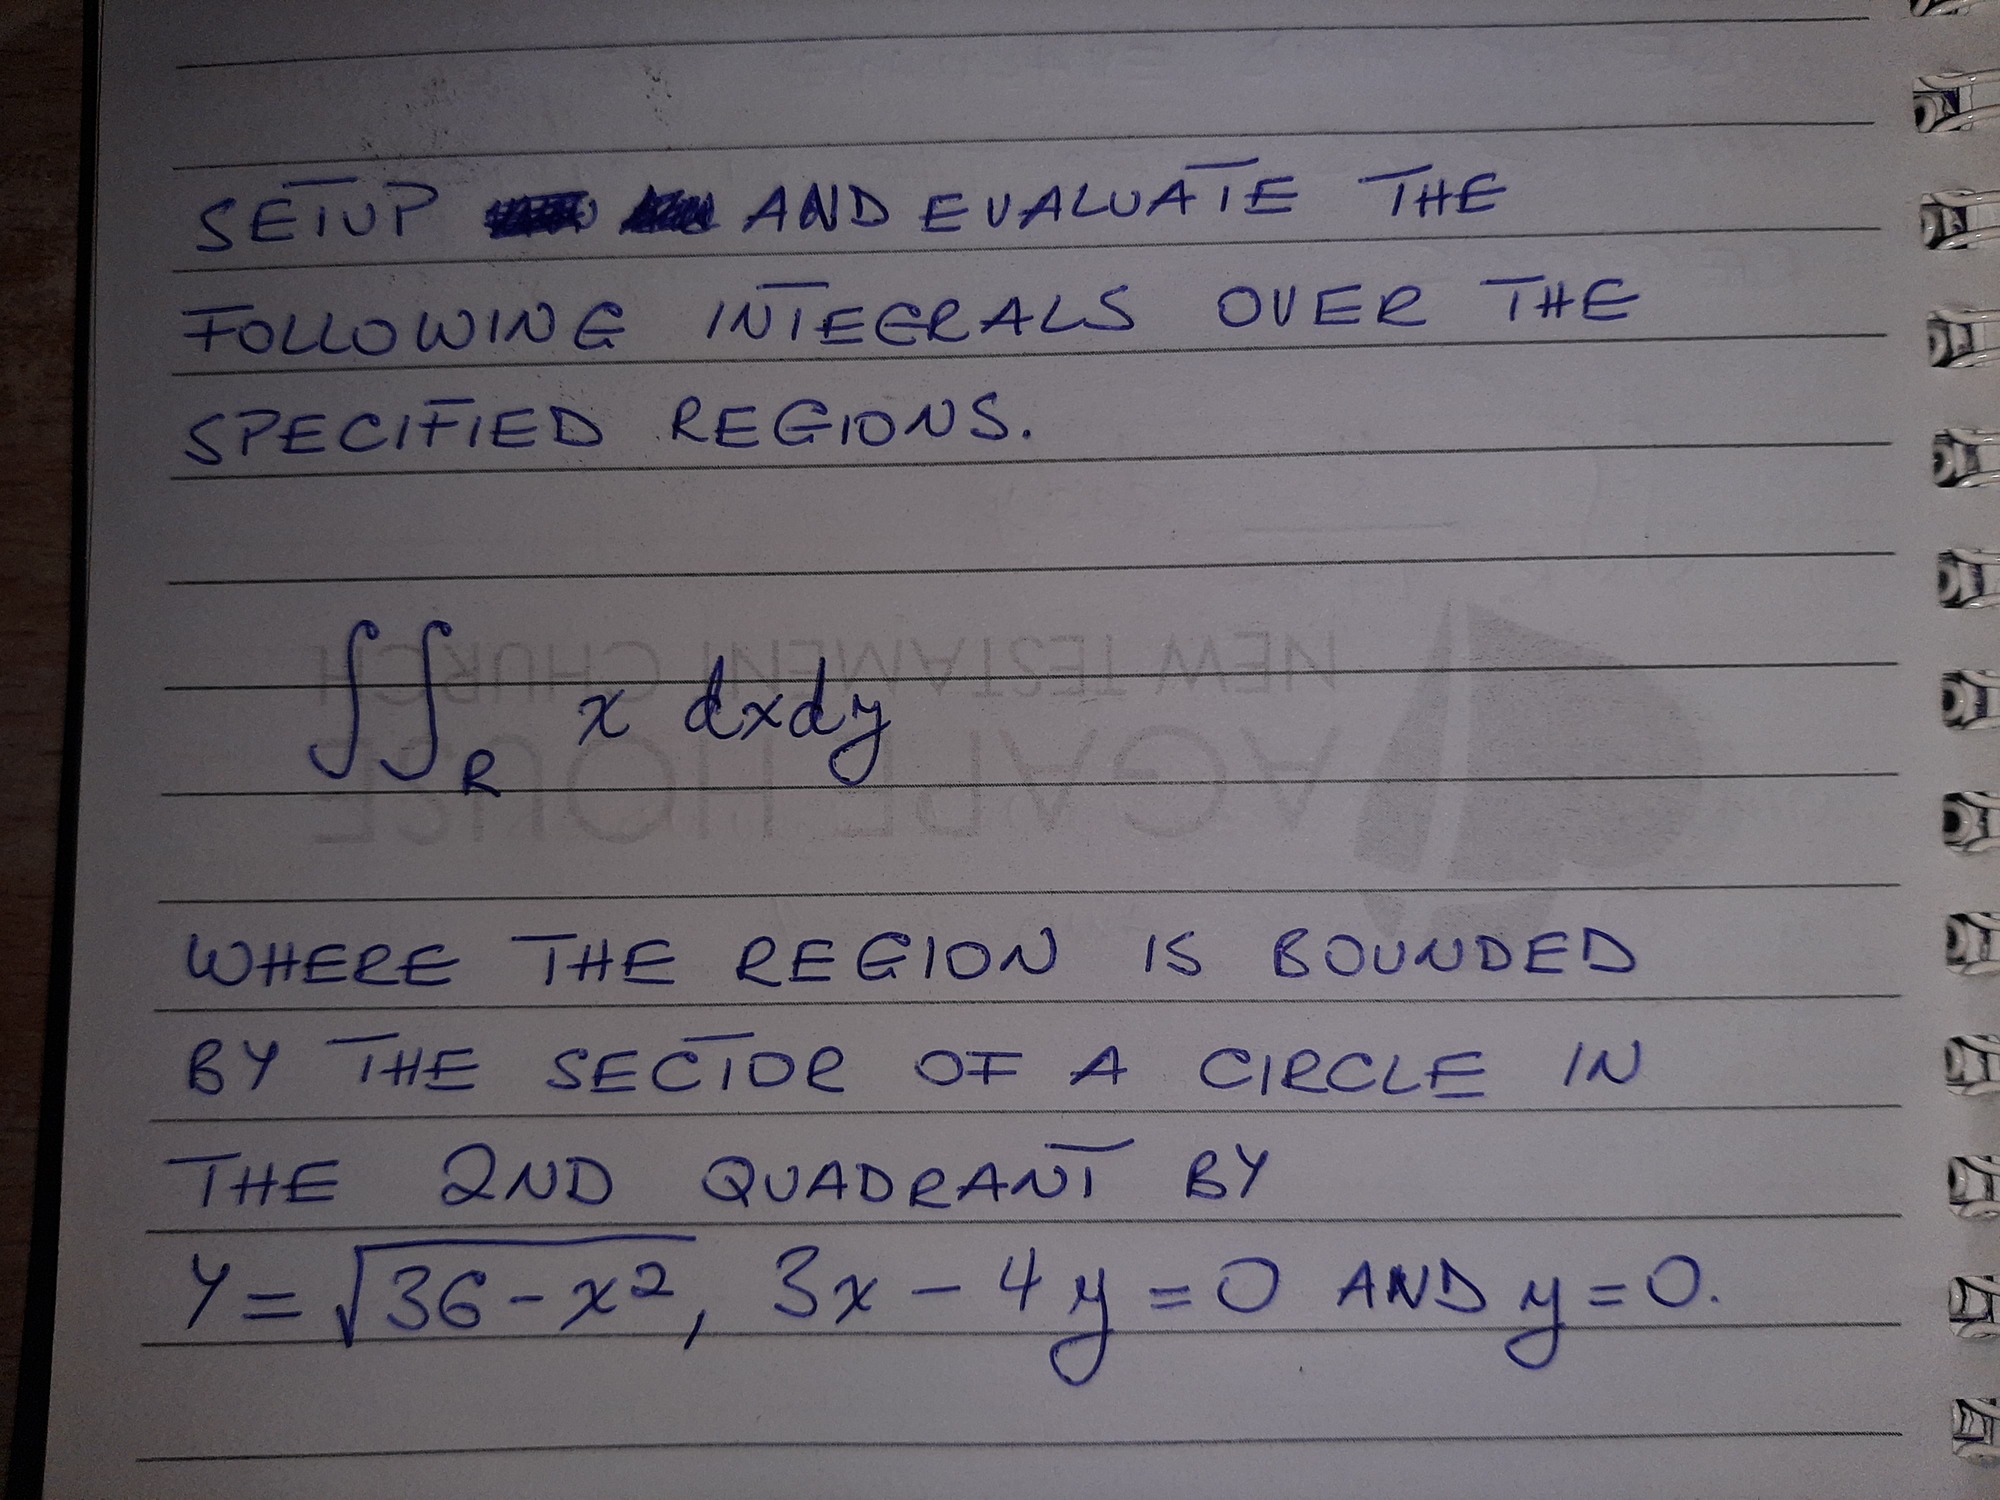 SETUP AND EVALUATE THE
FOLLOWING INTEGRALS OVER THE
SPECIFIED REGIONS.
NEW TESTAMENT CHURCH
∬_R x dxdy
AGAPE HOUSE
WHERE THE REGION IS BOUNDED
BY THE SECTOR OF A CIRCLE IN
THE 2ND QUADRANT BY
Y = √(36 - x²), 3x - 4y = 0 AND y = 0.